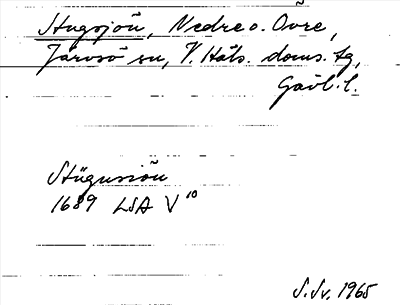 Stugsjön, Nedre o. Övre,
Järvsö sn, V. Häls. doms. tg,
Gävl. l.
Stügussiön
1689 LSA V¹⁰
S. Sv. 1965